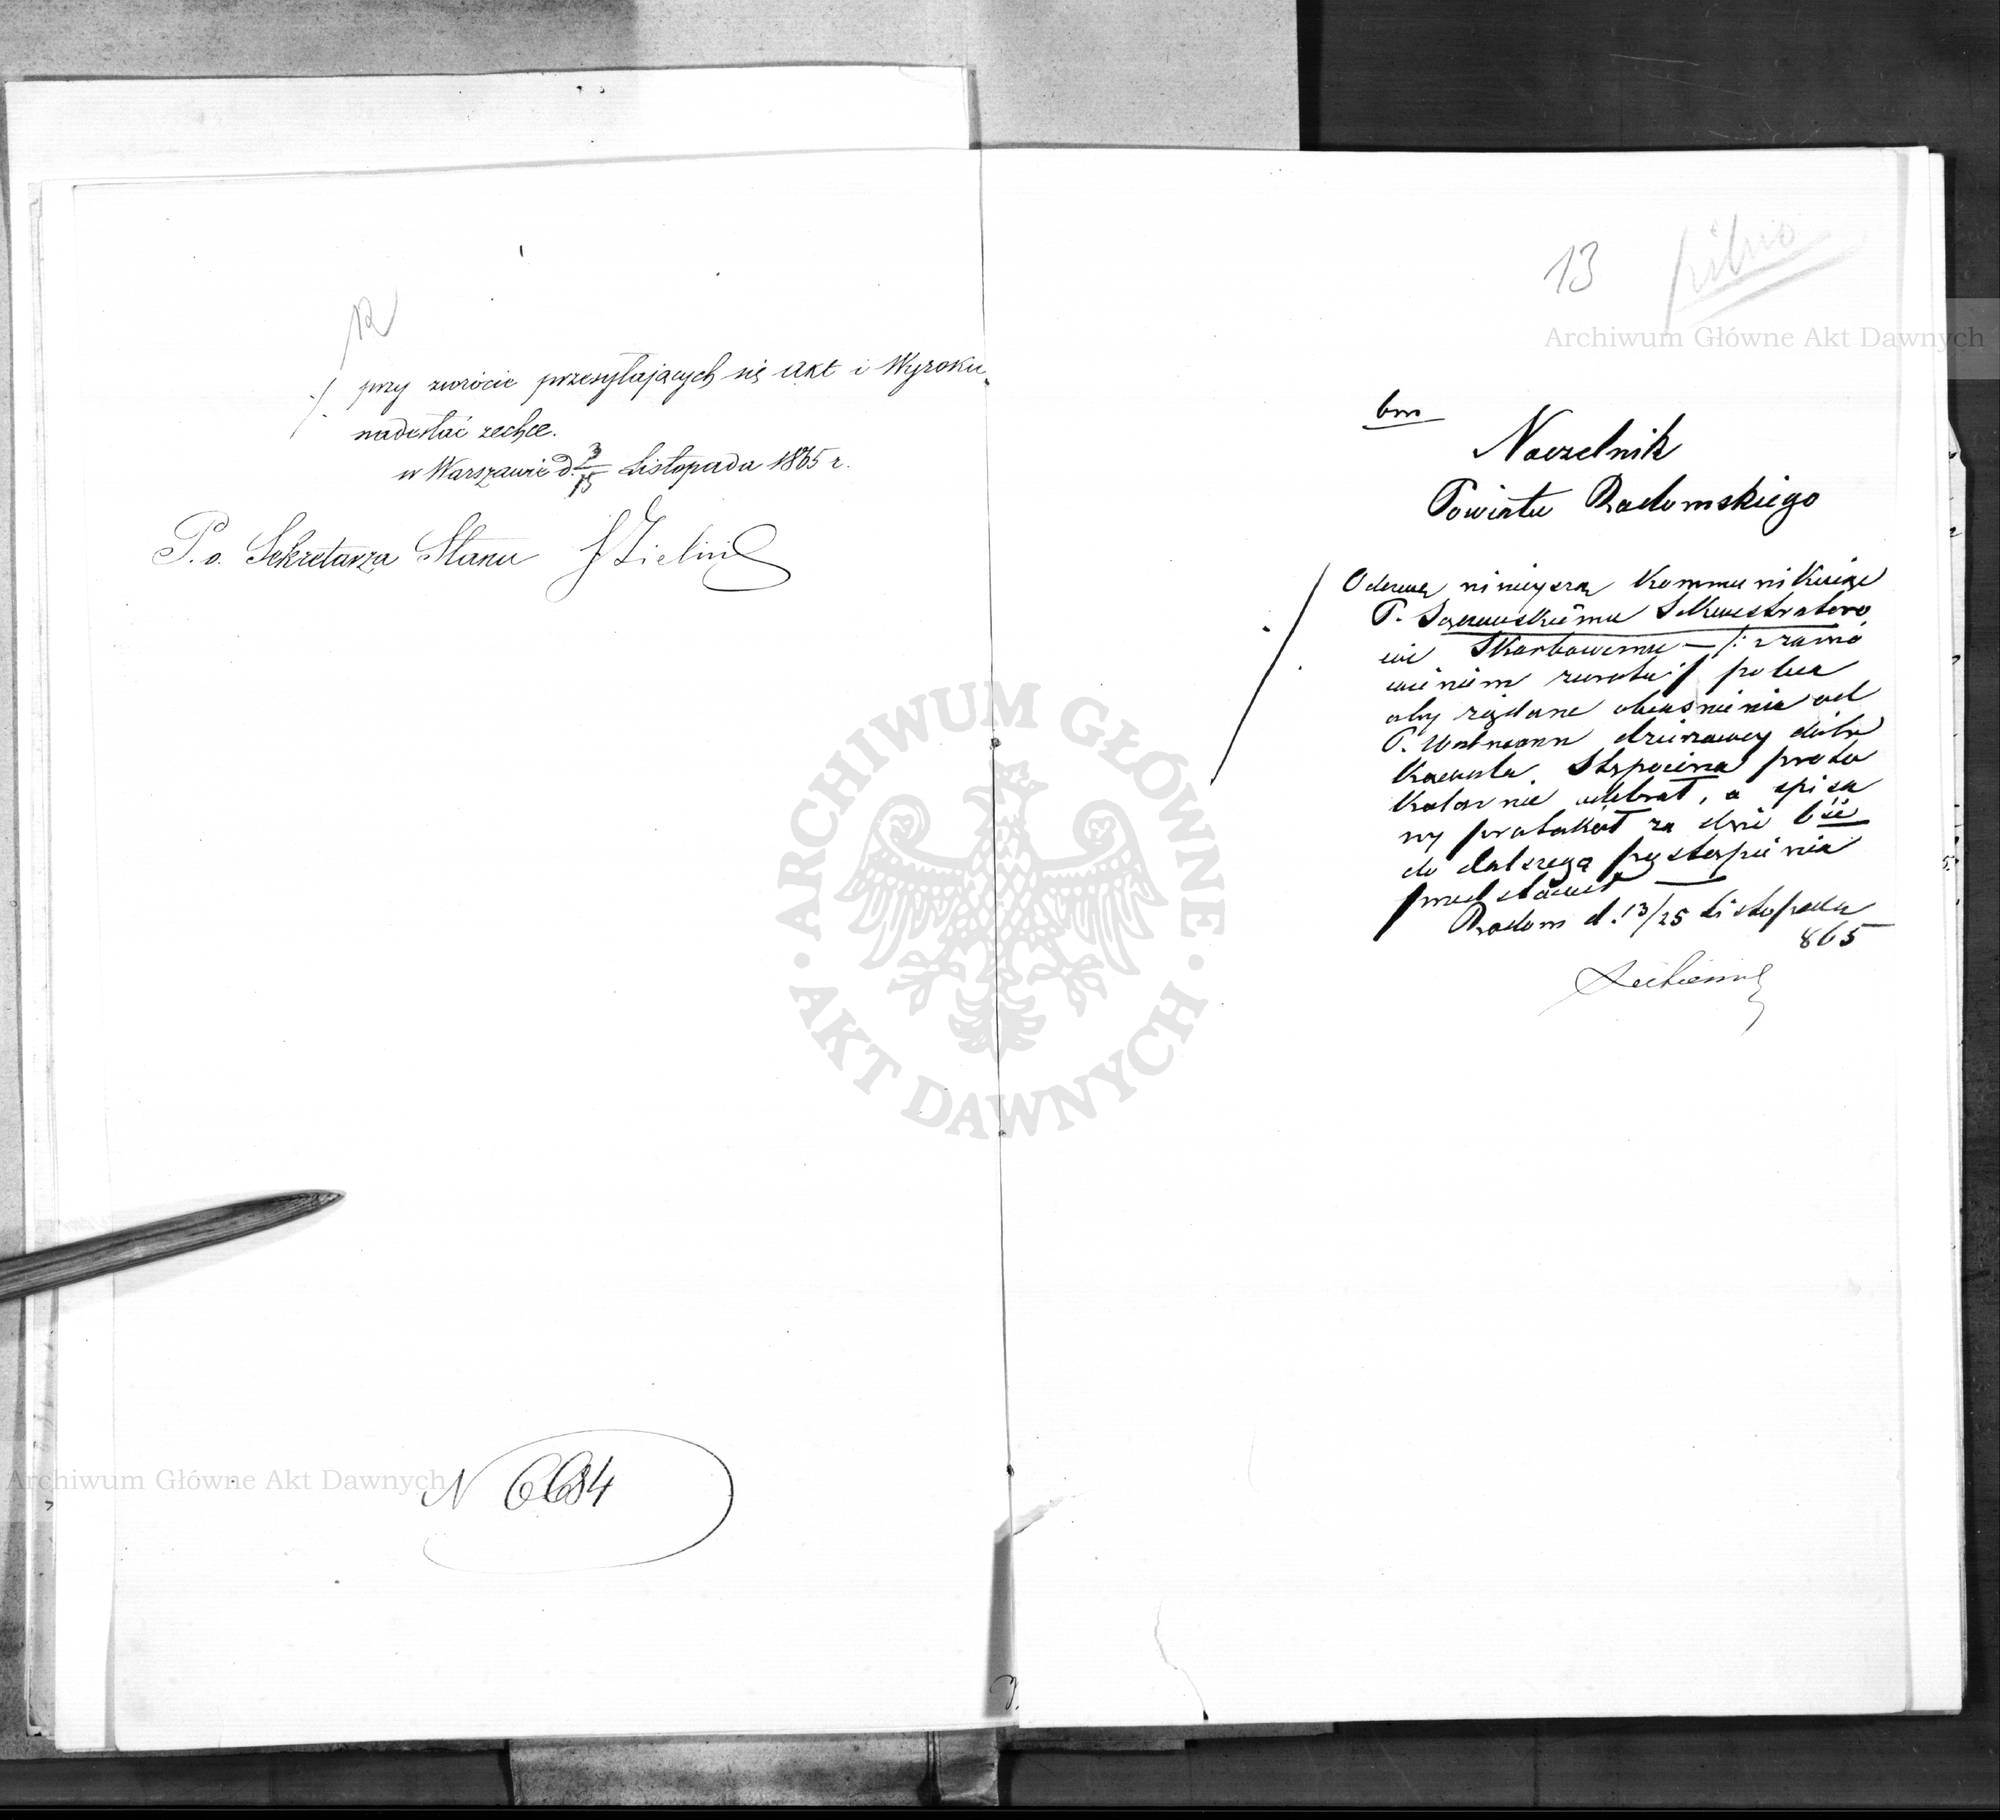 12
przy zwrócie przesyłających się Akt i Wyroku
nadesłać zechce.
w Warszawie d. 3/15 Listopada 1865 r.
P. o. Sekretarza Stanu
N 6684
13 pilno
Archiwum Główne Akt Dawnych
bm
Naczelnik
Powiatu Radomskiego
Odezwę niniejszą Kommunikuiąc
P. Sekwestratoro
wi Skarbowemu — /: z zamó
wieniem zwrotu :/ poleca
aby żądane obiasnienia od
P. dzierzawcy dóbr
proto
kolarnie odebrał, a spisa
ny protokół za dni
do dalszego przystąpienia
przedstawił —
Radom d. 13/25 Listopada
865
ARCHIWUM GŁÓWNE
AKT DAWNYCH
Archiwum Główne Akt Dawnych